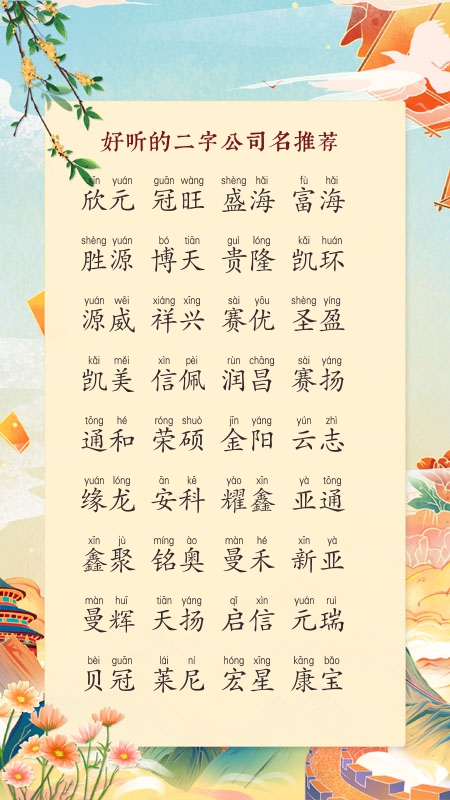 好听的二字公司名推荐
xīn yuán guān wàng shèng hǎi fù hǎi
欣元 冠旺 盛海 富海
shèng yuán bó tiān guì lóng kǎi huán
胜源 博天 贵隆 凯环
yuán wēi xiáng xīng sài yōu shèng yíng
源威 祥兴 赛优 圣盈
kǎi měi xìn pèi rùn chāng sài yáng
凯美 信佩 润昌 赛扬
tōng hé róng shuò jīn yáng yún zhì
通和 荣硕 金阳 云志
yuán lóng ān kē yào xīn yà tōng
缘龙 安科 耀鑫 亚通
xīn jù míng ào màn hé xīn yà
鑫聚 铭奥 曼禾 新亚
màn huī tiān yáng qǐ xìn yuán ruì
曼辉 天扬 启信 元瑞
bèi guān lái ní hóng xīng kāng bǎo
贝冠 莱尼 宏星 康宝